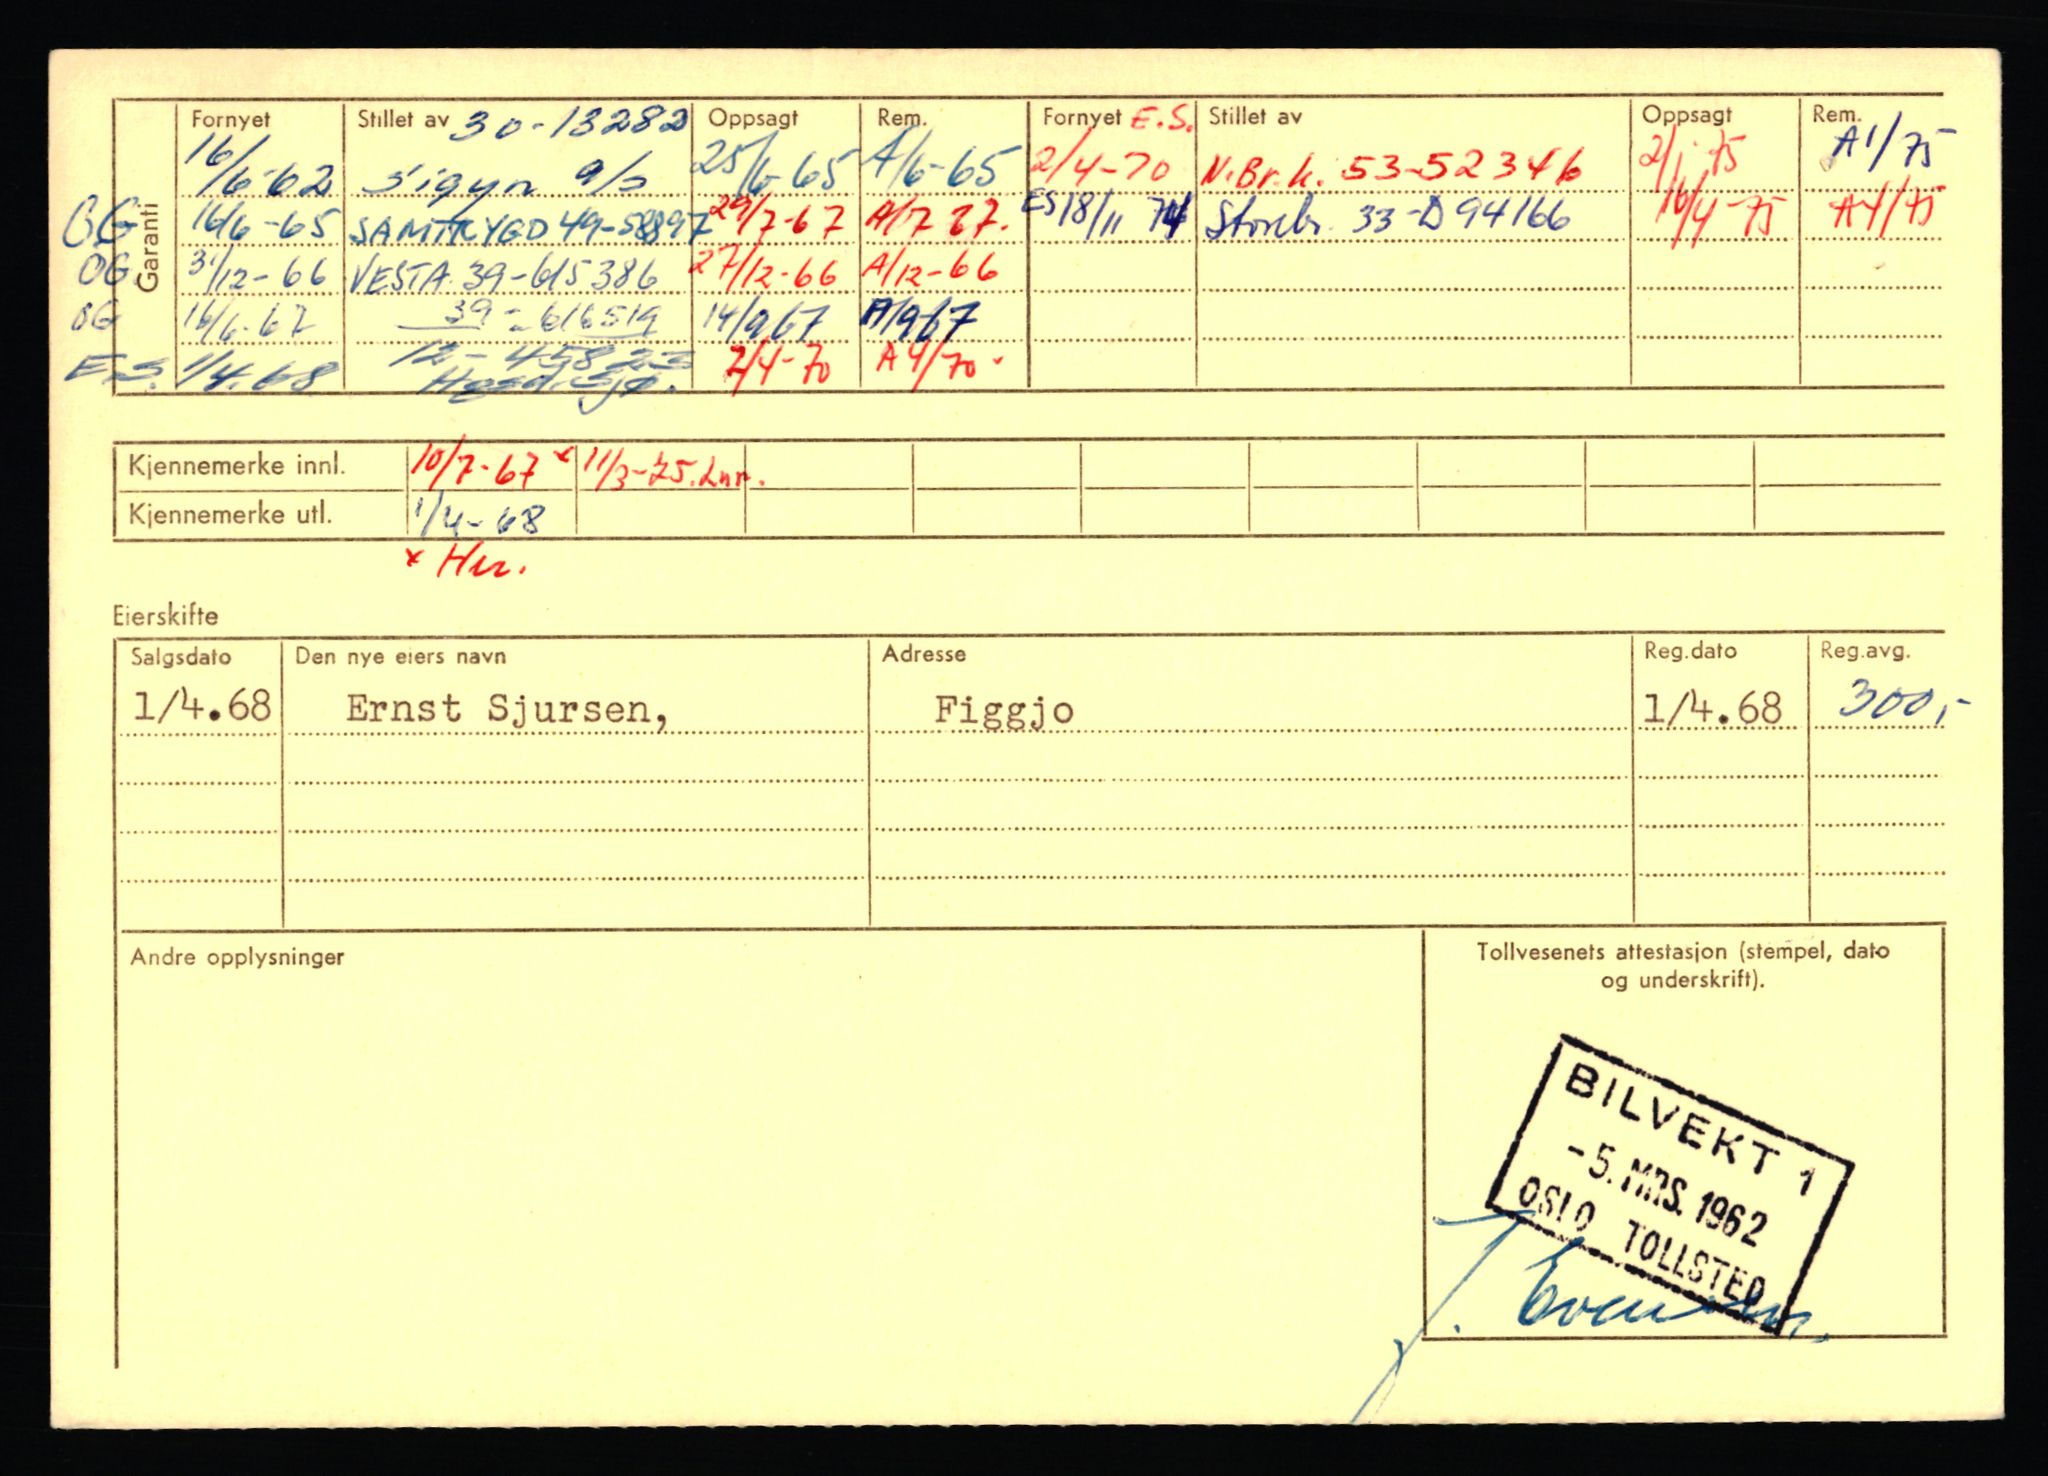 Garanti
Fornyet Stillet av 30-13282 Oppsagt Rem. Fornyet E.S. Stillet av Oppsagt Rem.
16/6-62 Sigyn a/s 25/6-65 A/6-65 2/4-70 N.Br.k. 53-52346 2/1-75 A1/75
OG 16/6-65 SAMTRYGD 49-58897 29/7-67 A/7 67. ES 18/11 74 Storebr. 33-D94166 16/4-75 A4/75
OG 31/12-66 VESTA 39-615386 27/12-66 A/12-66
OG 16/6-67 39-616519 14/9 67 A/9-67
E.S. 1/4.68 12-45823 2/4-70 A4/70.
Kjennemerke innl. 10/7-67 x 11/3-75.
Kjennemerke utl. 1/4-68
x Her.
Eierskifte
Salgsdato Den nye eiers navn Adresse Reg.dato Reg.avg.
1/4.68 Ernst Sjursen, Figgjo 1/4.68 300,-
Andre opplysninger
Tollvesenets attestasjon (stempel, dato
og underskrift).
BILVEKT 1
-5. MRS. 1962
OSLO TOLLSTED